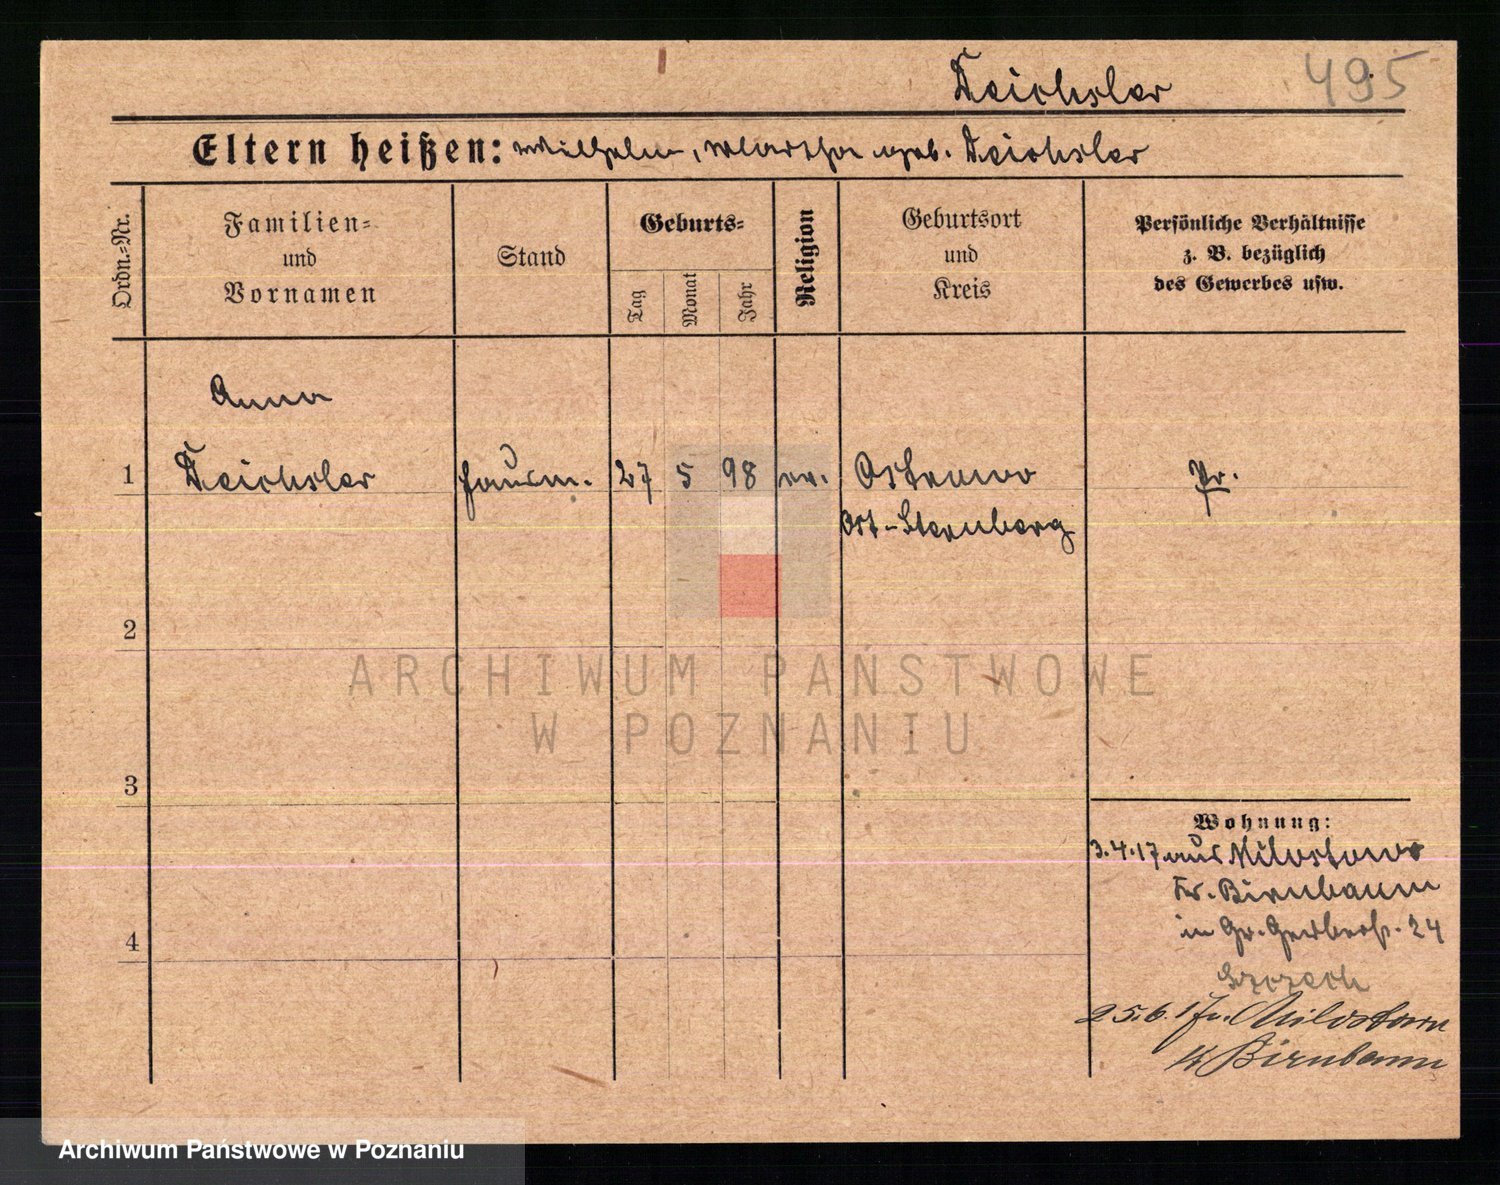 Teichsler 495
Eltern heißen: Wilhelm, Martha geb. Teichsler
Ordn.-Nr.
Familien-
und
Vornamen
Stand
Geburts-
Tag
Monat
Jahr
Religion
Geburtsort
und
Kreis
Persönliche Verhältnisse
z. B. bezüglich
des Gewerbes usw.
Anna
1 Teichsler Hausm. 27 5 98 ev. Ostrowo Pr.
Ost-Sternberg
2
3
4
Wohnung:
3.4.17 aus Milostowo
Kr. Birnbaum
in Gr. Gerberst. 24
25.6.17 n. Milostowo
K Birnbaum
ARCHIWUM PAŃSTWOWE
W POZNANIU
Archiwum Państwowe w Poznaniu